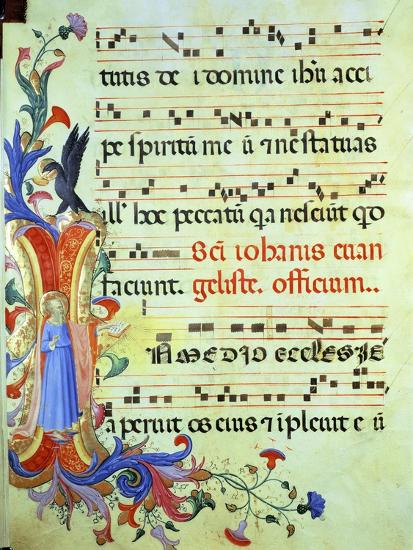 tutis de i domine ihū acci
pe spiritū me ū ⁊ ne statuas
ill' hoc peccatū q̄a nesciūt q̄d
Scī iohanis euan
faciunt. geliste. officium..
N MEDIO ECCLESIE
a peruit os eius ⁊ īpleuit e ū